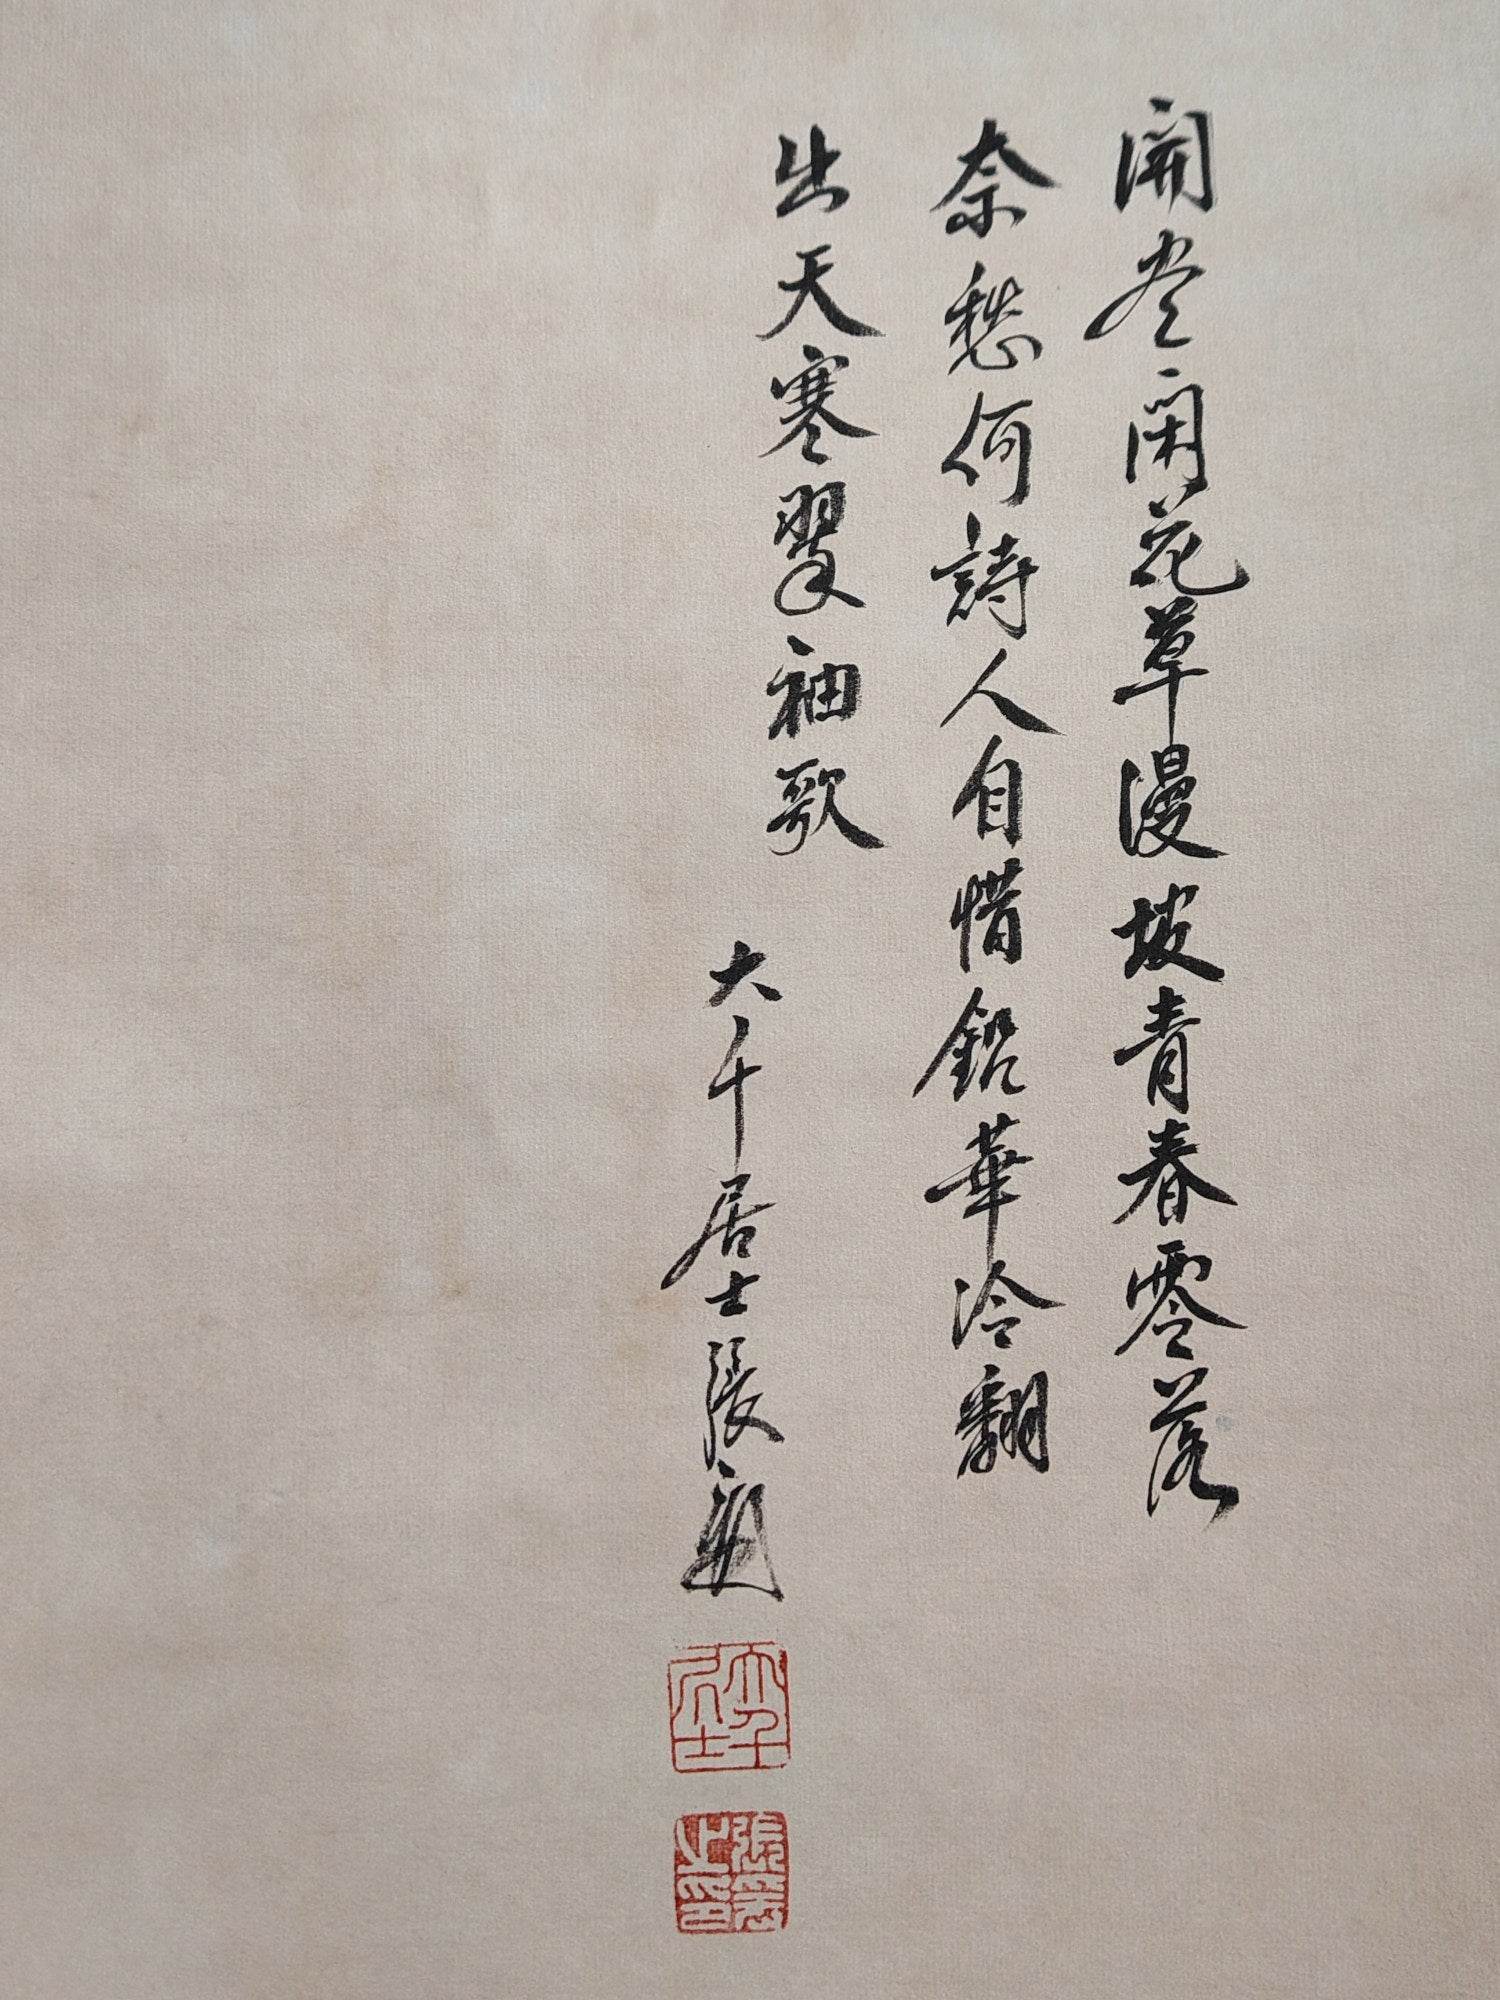 開盡闲花草漫坡青春零落
奈愁何詩人自惜鉛華冷翻
出天寒翠袖歌
大千居士張爰
大千居士
張爰之印